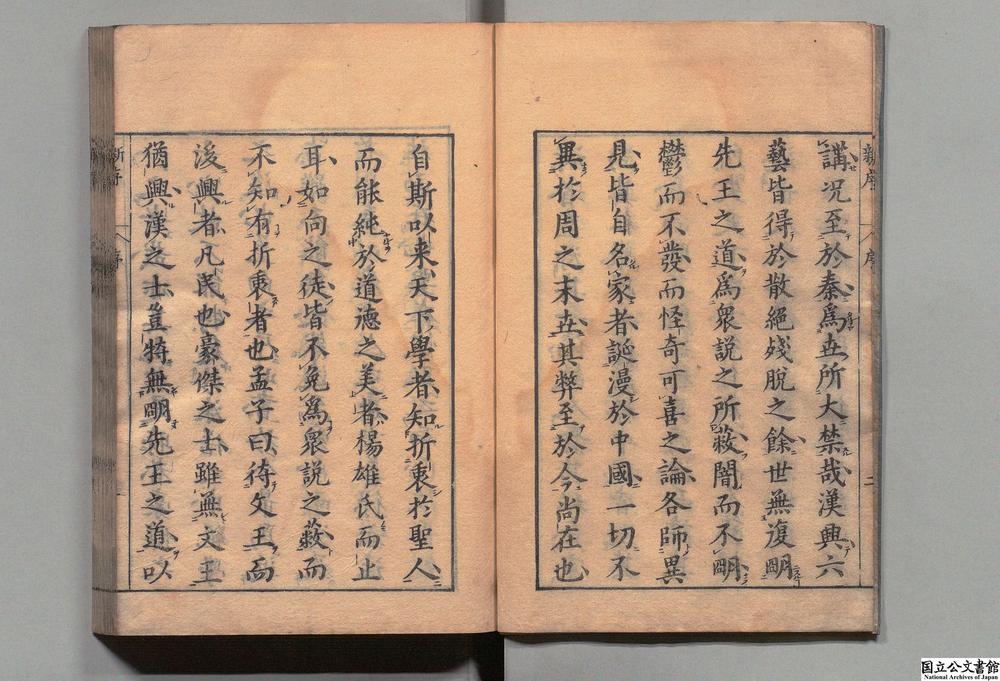 講况至於秦為世所大禁哉漢興六
藝皆得於散絕殘脫之餘世無復明
先王之道為衆説之所蔽闇而不明
鬱而不發而怪奇可喜之論各師異
見皆自名家者誕漫於中國一切不
異於周之末世其弊至於今尚在也
自斯以来天下學者知折衷於聖人
而能純於道德之美者楊雄氏而止
耳如向之徒皆不免為衆説之蔽而
不知有折衷者也孟子曰待文王而
後興者凡民也豪傑之士雖無文王
猶興漢之士豈特無明先王之道以
新序
序
二
国立公文書館
National Archives of Japan